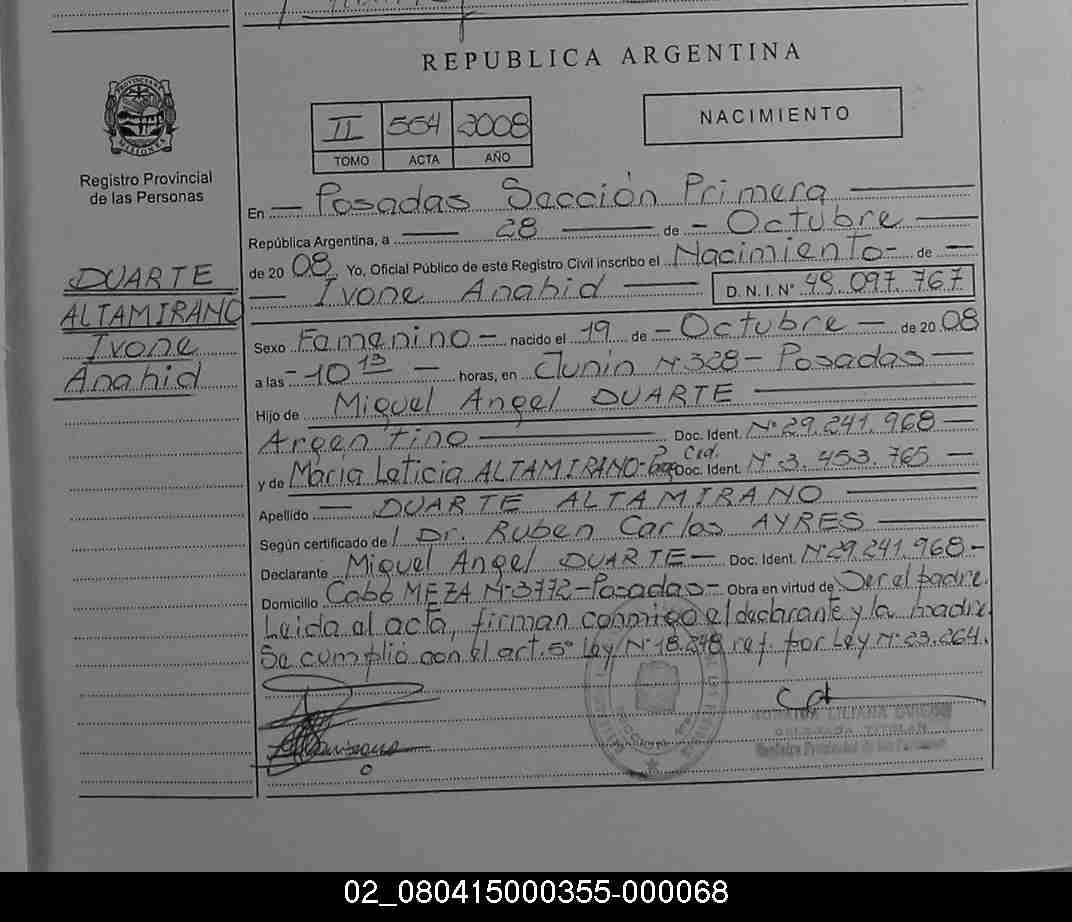 REPUBLICA ARGENTINA
PROVINCIA DE MISIONES
Registro Provincial
de las Personas
II 554 2008
TOMO ACTA AÑO
NACIMIENTO
DUARTE
ALTAMIRANO
Ivone
Anahid
En — Posadas Sección Primera —
República Argentina, a — 28 — de — Octubre —
de 20 08. Yo, Oficial Público de este Registro Civil inscribo el Nacimiento - de —
— Ivone Anahid — D.N.I. N° 49.097.767
Sexo Femenino — nacido el 19 de — Octubre — de 20 08
a las - 10 13 — horas, en Junin N° 328 - Posadas —
Hijo de Miguel Angel DUARTE —
Argentino — Doc. Ident. N° 29.241.968 —
y de Maria Leticia ALTAMIRANO - Doc. Ident. N° 3.453.765 —
Apellido — DUARTE ALTAMIRANO —
Según certificado de Dr. Ruben Carlos AYRES —
Declarante Miguel Angel DUARTE — Doc. Ident. N° 29.241.968 -
Domicilio Cabo MEZA N° 3772 - Posadas - Obra en virtud de Ser el padre.
Leida al acta, firman conmigo el declarante y la madre
Se cumplió con el art. 5° Ley N° 18.248 ref. por Ley N° 23.264.
02_080415000355-000068